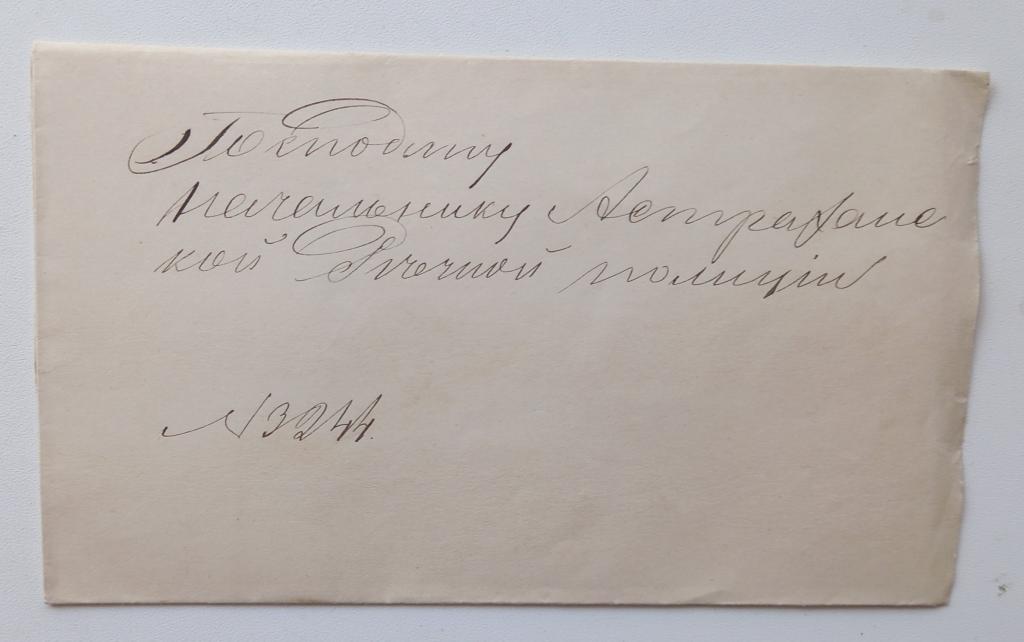 Господину
Начальнику Астраханс
кой Рѣчной полиціи
№ 3244.